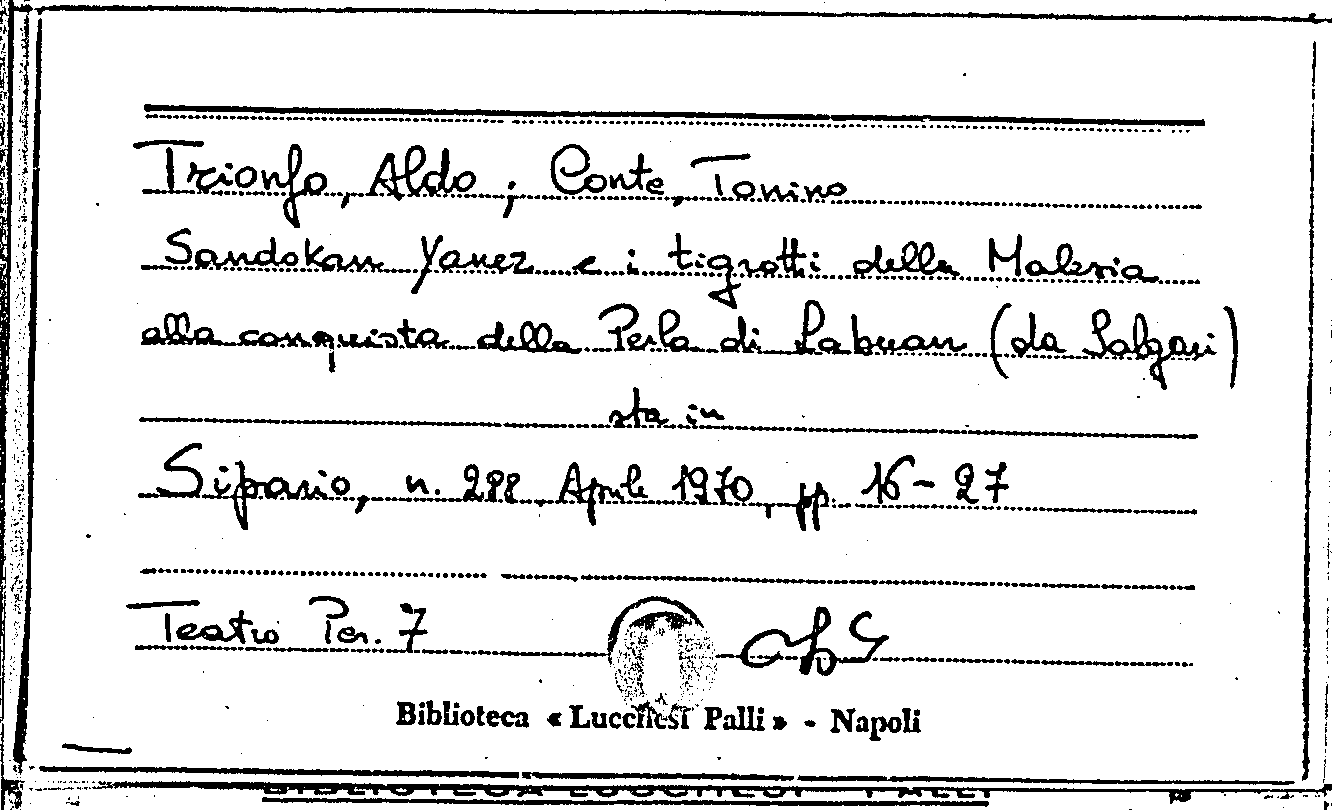 Trionfo, Aldo; Conte, Tonino
Sandokan Yanez e i tigrotti della Malesia
alla conquista della Perla di Labuan (da Salgari)
sta in
Sipario, n. 288, Aprile 1970, pp. 16-27
Teatro Per. 7
Biblioteca « Lucchesi Palli » - Napoli
BIBLIOTECA LUCCHESI - PALLI